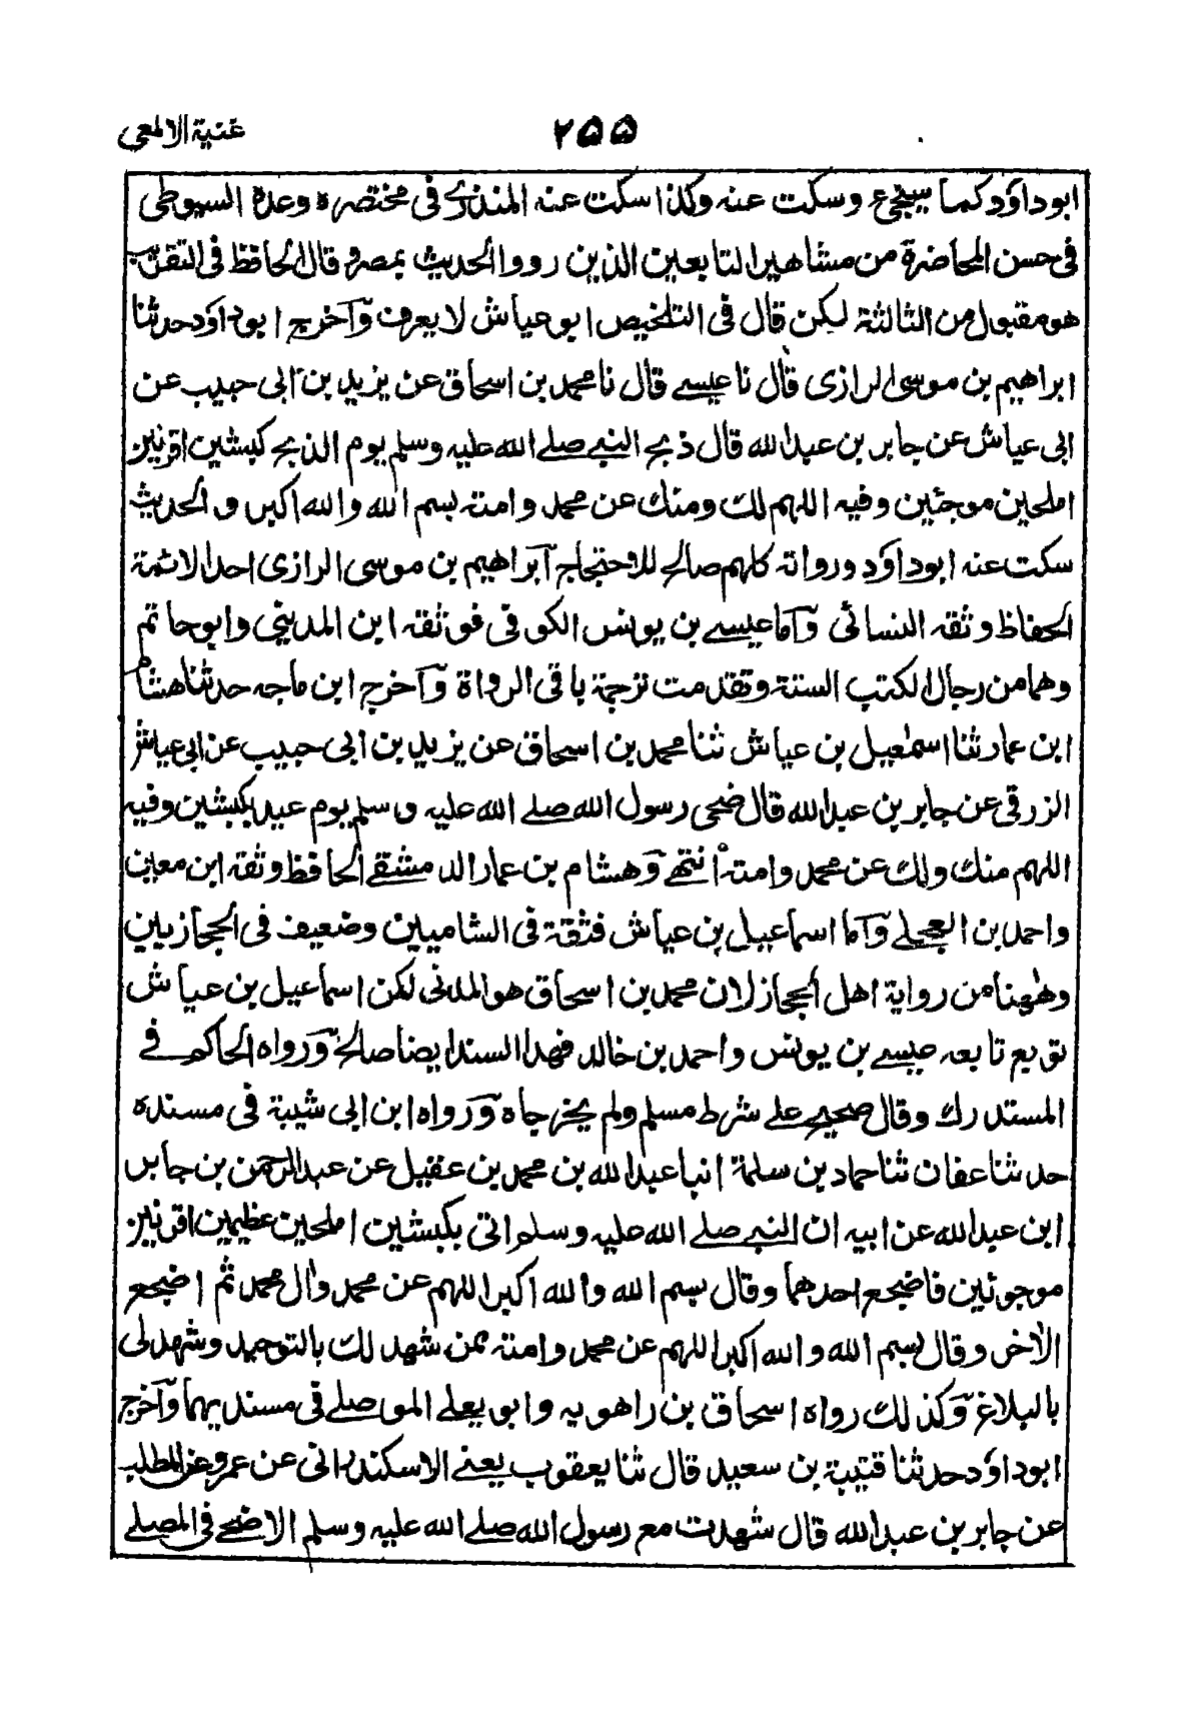 ۲۵۵ غنية الالمعى
ابوداؤد كما سيجئ وسكت عنه وكذا سكت عنه المنذرى فى مختصره وعده السيوطى
فى حسن المحاضرة من مشاهير التابعين الذين رووا الحديث بمصر وقال الحافظ فى التقريب
هو مقبول من الثالثة لكن قال فى التلخيص ابو عياش لا يعرف وآخرج ابوداؤد حدثنا
ابراهيم بن موسى الرازى قال نا عيسے قال نا محمد بن اسحاق عن يزيد بن ابى حبيب عن
ابى عياش عن جابر بن عبدالله قال ذبح النبے صلے الله عليه وسلم يوم الذبح كبشين اقرنين
املحين موجئين وفيه اللهم لك ومنك عن محمد وامته بسم الله والله اكبر والحديث
سكت عنه ابوداؤد ورواته كلهم صالح للاحتجاج آبراهيم بن موسى الرازى احد الائمة
الحفاظ وثقه النسائى وآما عيسے بن يونس الكوفى فوثقه ابن المدينى وابو حاتم
وهما من رجال الكتب الستة وتقدمت ترجمة باقى الرواة وآخرج ابن ماجه حدثنا هشام
ابن عمار ثنا اسمٰعيل بن عياش ثنا محمد بن اسحاق عن يزيد بن ابى حبيب عن ابى عياش
الزرقى عن جابر بن عبدالله قال ضحى رسول الله صلے الله عليه وسلم يوم عيد بكبشين وفيه
اللهم منك ولك عن محمد وامته انتهٰے وهشام بن عمار الدمشقے الحافظ وثقه ابن معين
واحمد بن العجلے وآما اسماعيل بن عياش فثقة فى الشاميين وضعيف فى الحجازيين
وهٰهنا من رواية اهل الحجاز لان محمد بن اسحاق هو المدنى لكن اسماعيل بن عياش
تويع تابعه عيسے بن يونس واحمد بن خالد فهذا السند ايضا صالح ورواه الحاكم فے
المستدرك وقال صحيح علے شرط مسلم ولم يخرجاه ورواه ابن ابى شيبة فى مسنده
حدثنا عفان ثنا حماد بن سلمة انبا عبدالله بن محمد بن عقيل عن عبدالرحمن بن جابر
ابن عبدالله عن ابيه ان النبے صلے الله عليه وسلم اتى بكبشين املحين عظيمين اقرنين
موجوئين فاضجع احدهما وقال بسم الله والله اكبر اللهم عن محمد وال محمد ثم اضجع
الاخر وقال بسم الله والله اكبر اللهم عن محمد وامته ممن شهد لك بالتوحيد وشهد لى
بالبلاغ وكذلك رواه اسحاق بن راهويه وابو يعلے الموصلے فى مسنديهما وآخرج
ابوداؤد حدثنا قتيبة بن سعيد قال ثنا يعقوب يعنے الاسكندرانى عن عمرو عن المطلب
عن جابر بن عبدالله قال شهدت مع رسول الله صلے الله عليه وسلم الاضحے فى المصلے